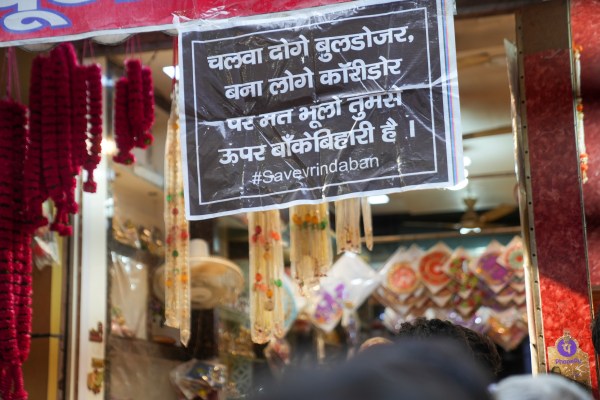 चलवा दोगे बुलडोजर,
बना लोगे कॉरीडोर
पर मत भूलो तुमसे
ऊपर बाँकेबिहारी है ।
#Savevrindaban